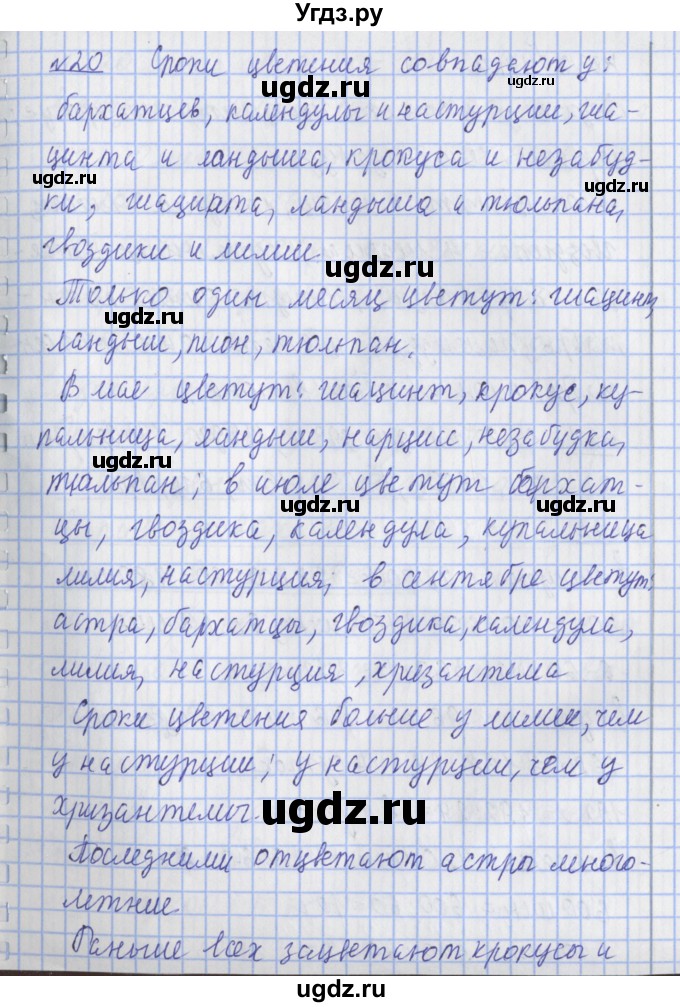 Угдз.ру
№20 Сроки цветения совпадают у:
ugdz.ru
бархатцев, календулы и настурции, гиа-
цинта и ландыша, крокуса и незабуд-
ugdz.ru
ugdz.ru
ки; гиацинта, ландыша и тюльпана,
гвоздики и лилии.
ugdz.ru
Только один месяц цветут: гиацинт,
ugdz.ru
ландыш, пион, тюльпан.
В мае цветут: гиацинт, крокус, ку-
пальница, ландыш, нарцисс, незабудка,
ugdz.ru
тюльпан; в июле цветут бархат-
ugdz.ru
цы, гвоздика, календула, купальница
лилия, настурция, в сентябре цветут:
астра, бархатцы, гвоздика, календула,
лилия, настурция, хризантема
Сроки цветения больше у лилии, чем
у настурции; у настурции, чем у
хризантемы.
ugdz.ru
Последними отцветают астры много-
летние
Раньше всех зацветают крокусы и
ugdz.ru
ugdz.ru